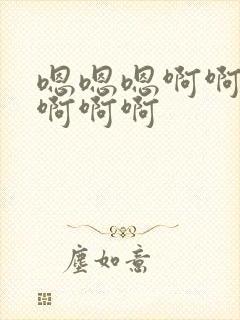 嗯嗯嗯啊啊
啊啊啊
尘如意